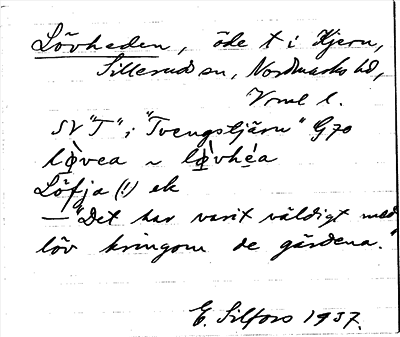 Lövheden, öde t i Hjern,
Sillerud sn, Nordmarks hd,
Vrml l.
SV "T", i "Tvengstjärn" G70
lø̀vea ~ lø̀vhèa
Löfja (!) ek
— "Det har varit väldigt med
löv kringom de gårdena."
E. Silfors 1937.